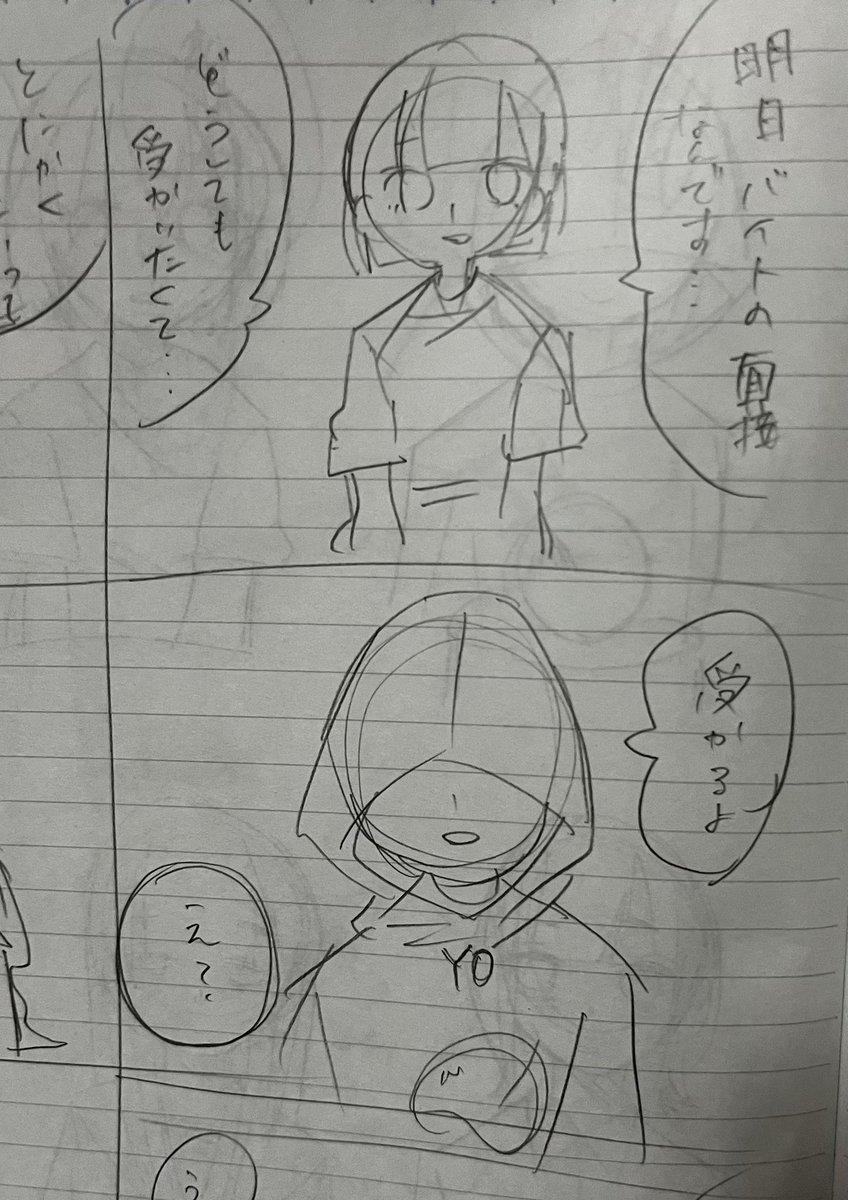 明日バイトの面接
なんです…
どうしても
受かりたくて…
とにかく
受かるよ
えて
YO
う